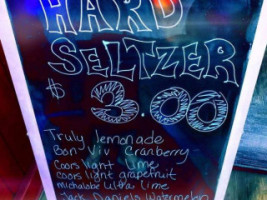 HARD
SELTZER
$ 3.00
Truly lemonade
Bon Viv Cranberry
Coors light lime
Coors light grapefruit
michalobe Ultra lime
Jack Daniels Watermelon